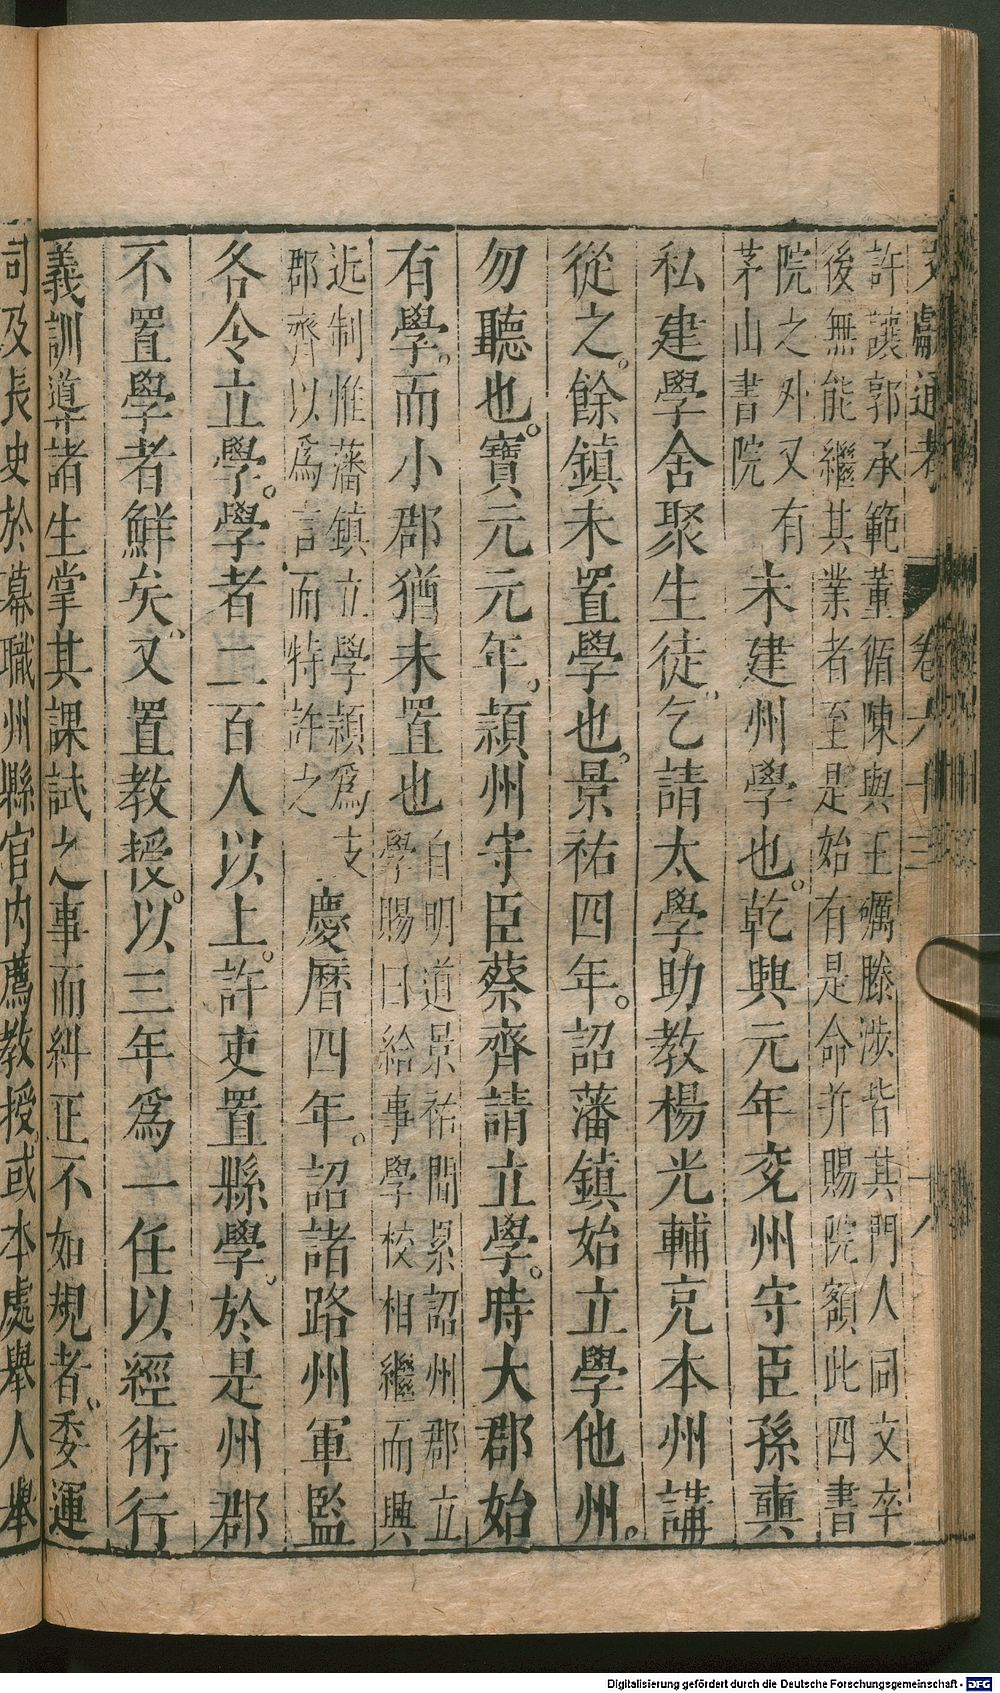 文獻通考 卷六十三 十八
許讓郭承範董循陳與王礪滕涉皆其門人同文卒
後無能繼其業者至是始有是命并賜院額此四書
院之外又有
茅山書院
未建州學也。乾興元年兗州守臣孫奭
私建學舍聚生徒乞請太學助教楊光輔充本州講
從之。餘鎮未置學也。景祐四年。詔藩鎮始立學他州。
勿聽也。寶元元年。潁州守臣蔡齊請立學。時大郡始
有學。而小郡猶未置也
自明道景祐間累詔州郡立
學賜田給事學校相繼而興
近制惟藩鎮立學潁爲支
郡齊以爲言而特許之
慶曆四年。詔諸路州軍監
各令立學。學者二百人以上。許吏置縣學。於是州郡
不置學者鮮矣。又置教授。以三年爲一任以經術行
義訓導諸生掌其課試之事而糾正不如規者。委運
司及長史於幕職州縣官內薦教授。或本處舉人舉
Digitalisierung gefördert durch die Deutsche Forschungsgemeinschaft - DFG